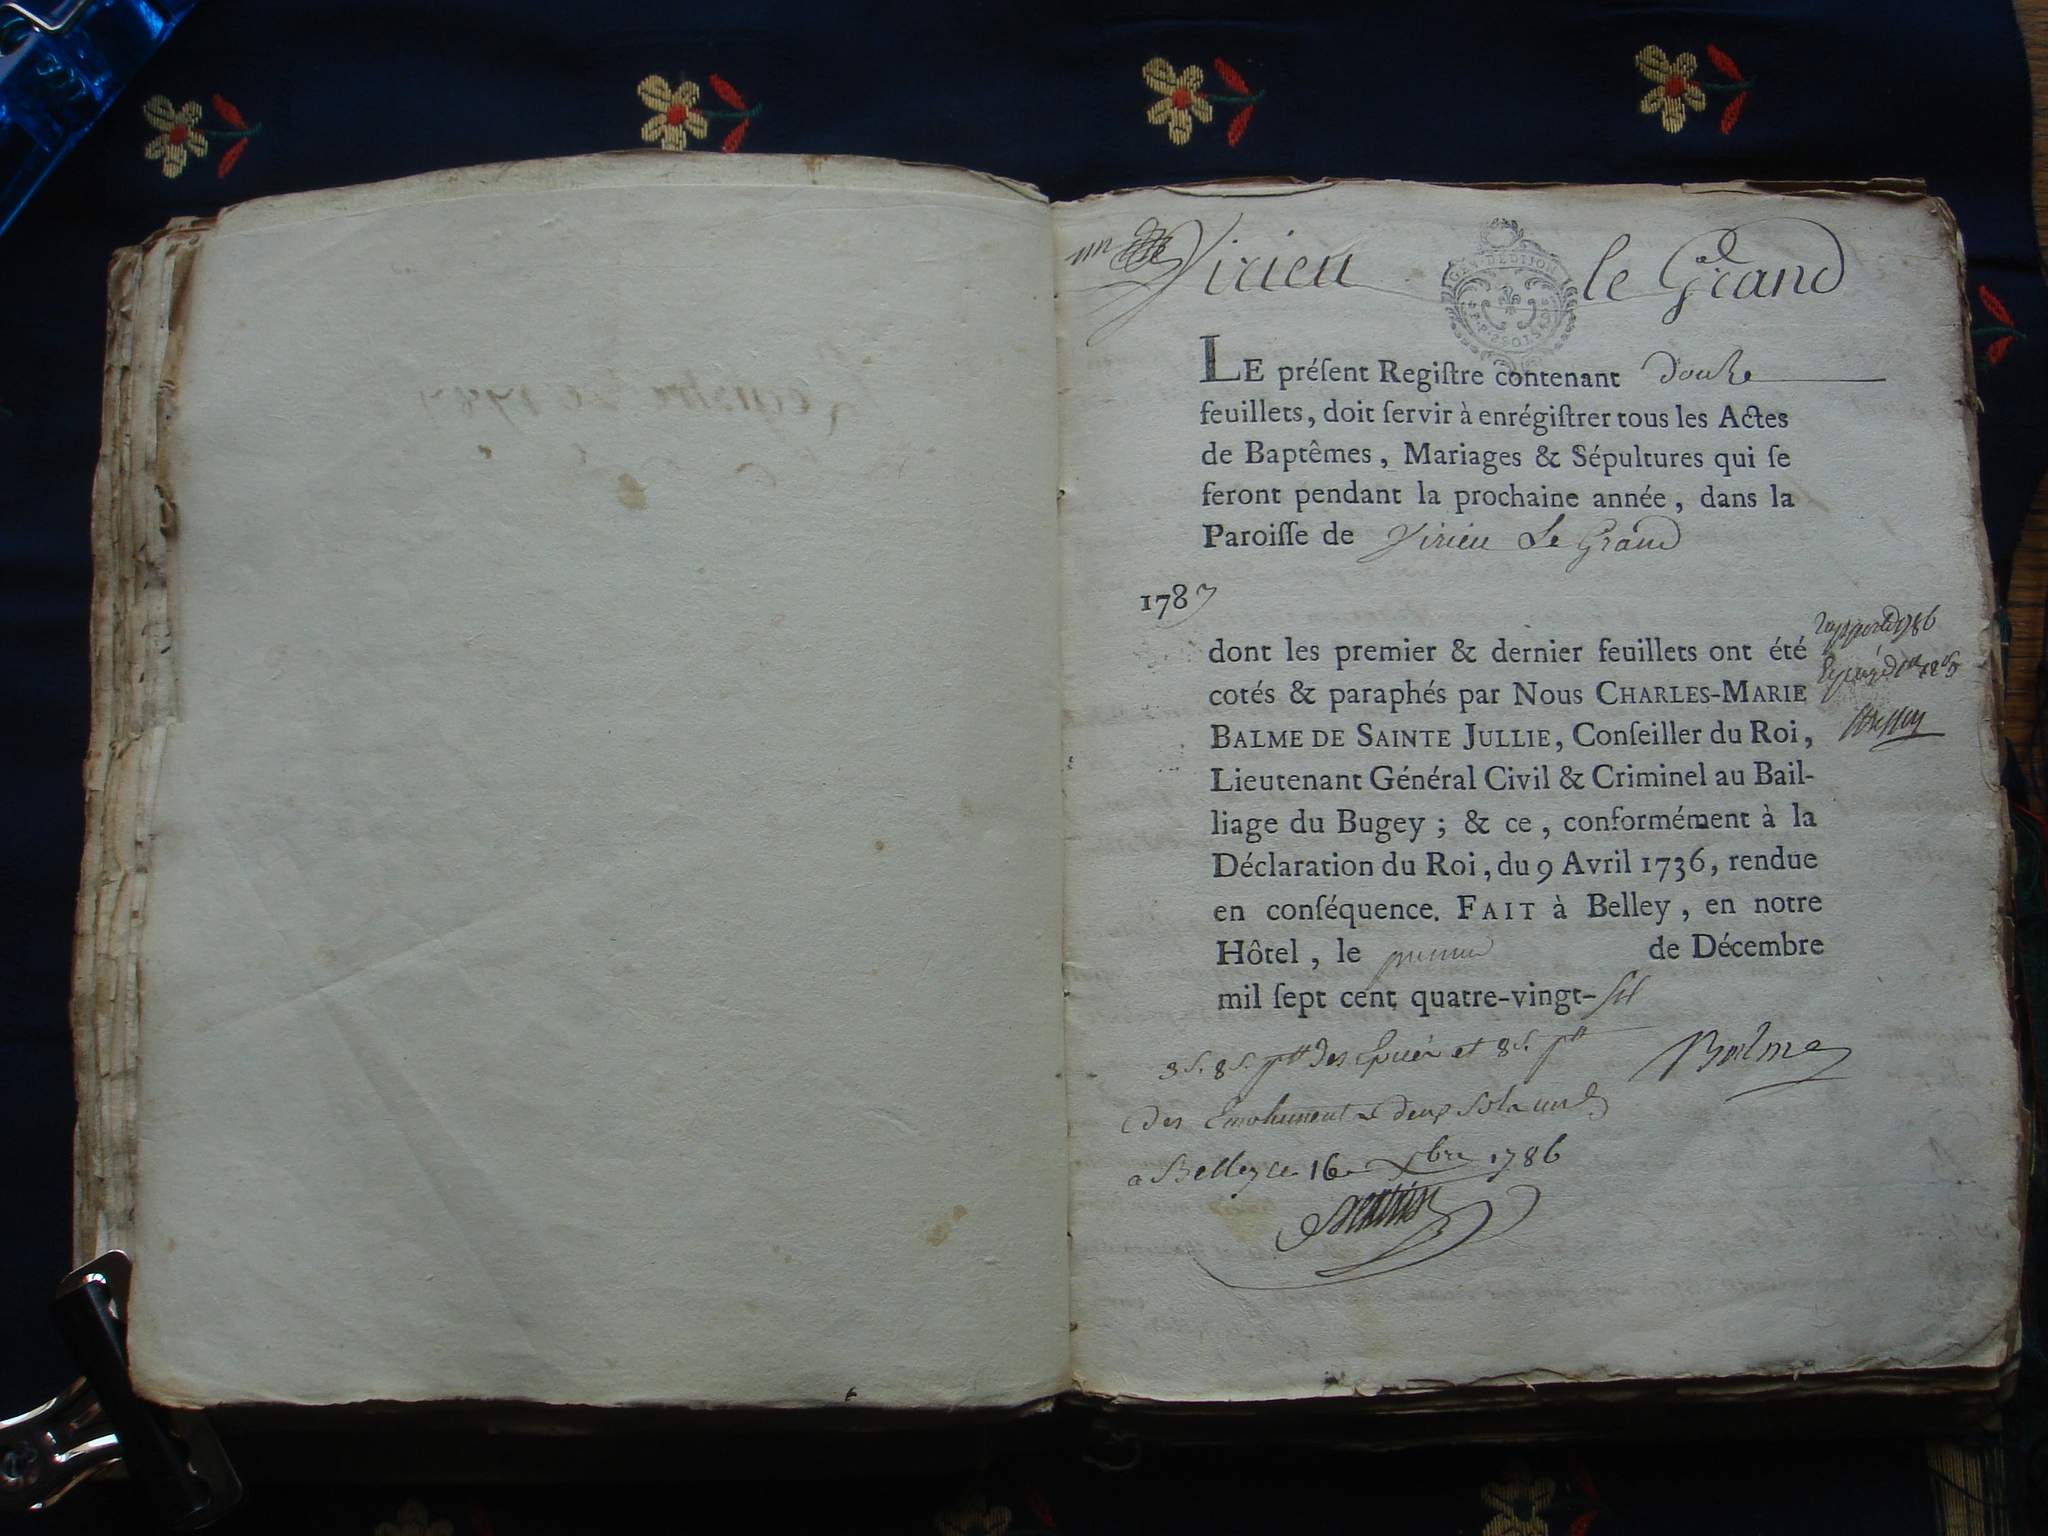 un Virieu le Grand
GEN. DE DIJON
LE préſent Regiſtre contenant douze
feuillets, doit ſervir à enrégiſtrer tous les Actes
de Baptêmes, Mariages & Sépultures qui ſe
feront pendant la prochaine année, dans la
Paroiſſe de Virieu Le Grand
1787
dont les premier & dernier feuillets ont été
cotés & paraphés par Nous CHARLES-MARIE
BALME DE SAINTE JULLIE, Conſeiller du Roi,
Lieutenant Général Civil & Criminel au Bail-
liage du Bugey ; & ce, conformément à la
Déclaration du Roi, du 9 Avril 1736, rendue
en conſéquence. FAIT à Belley, en notre
Hôtel, le premier de Décembre
mil ſept cent quatre-vingt-six
3 s. 8 d. des et 8 s.
Balme
Des Emolument deux sols
a Belley ce 16 Xbre 1786
1786